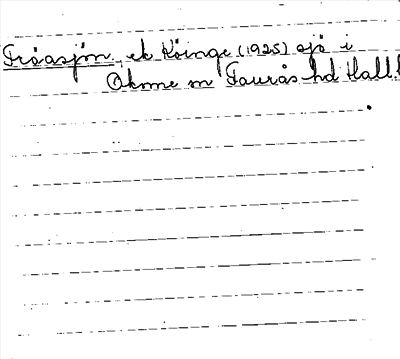 Fröasjön, ek Köinge (1925) sjö i
Okome sn Faurås hd Hall.